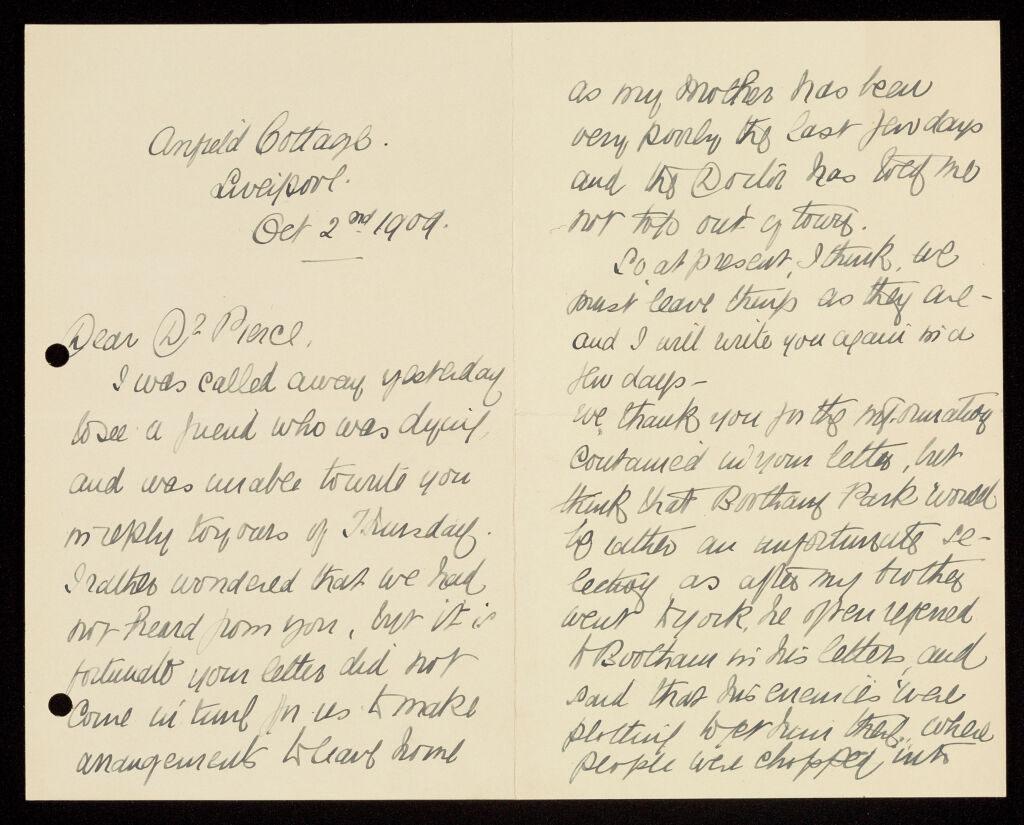 Anfield Cottage.
Liverpool.
Oct 2nd 1909.
Dear Dr Pierce,
I was called away yesterday
to see a friend who was dying,
and was unable to write you
in reply to yours of Thursday.
I rather wondered that we had
not heard from you, but it is
fortunate your letter did not
come in time for us to make
arrangements to leave home
as my Mother has been
very poorly the last few days
and the Doctor has told me
not to go out of town.
So, at present, I think, we
must leave things as they are -
and I will write you again in a
few days -
We thank you for the information
contained in your letter, but
think that Bootham Park would
be rather an unfortunate se-
lection as after my brother
went to York, he often referred
to Bootham in his letters, and
said that his enemies were
plotting to get him there, where
people were chopped into